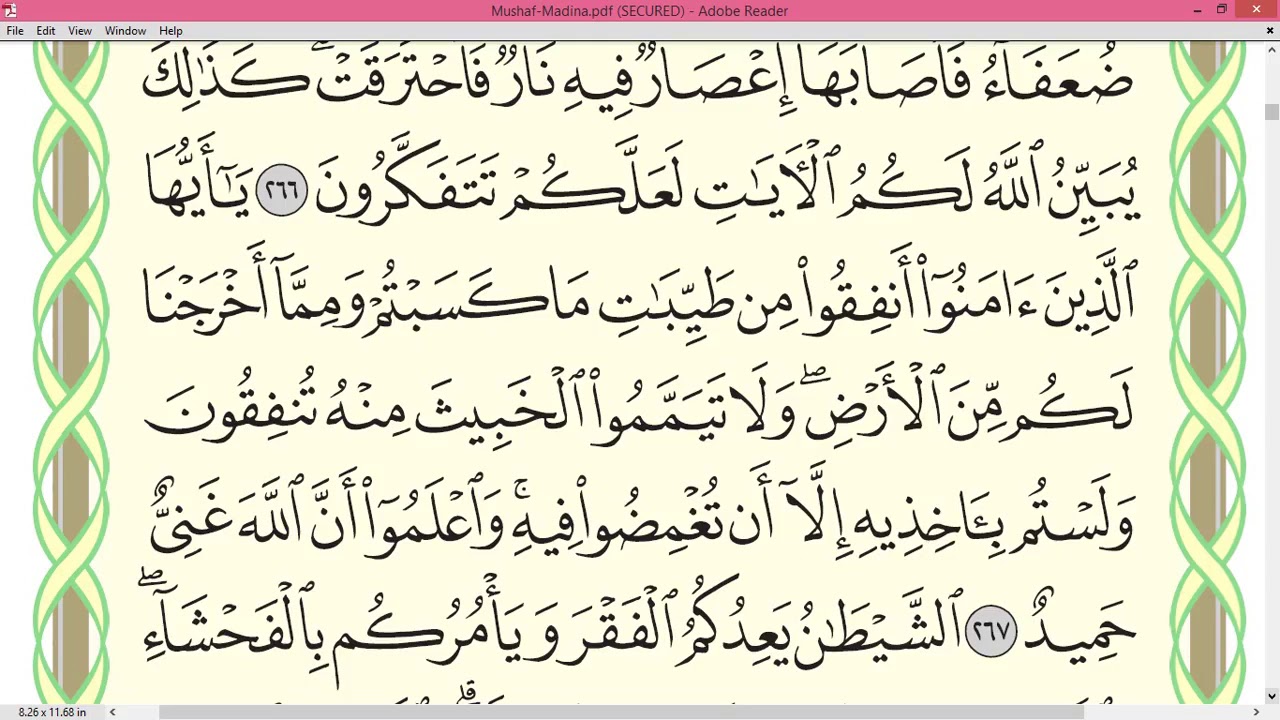 Mushaf-Madina.pdf (SECURED) - Adobe Reader
File Edit View Window Help
ضُعَفَآءُ فَأَصَابَهَآ إِعْصَارٌ فِيهِ نَارٌ فَٱحْتَرَقَتْ ۗ كَذَٰلِكَ
يُبَيِّنُ ٱللَّهُ لَكُمُ ٱلْأَيَـٰتِ لَعَلَّكُمْ تَتَفَكَّرُونَ ٢٦٦ يَـٰٓأَيُّهَا
ٱلَّذِينَ ءَامَنُوٓا۟ أَنفِقُوا۟ مِن طَيِّبَـٰتِ مَا كَسَبْتُمْ وَمِمَّآ أَخْرَجْنَا
لَكُم مِّنَ ٱلْأَرْضِ ۖ وَلَا تَيَمَّمُوا۟ ٱلْخَبِيثَ مِنْهُ تُنفِقُونَ
وَلَسْتُم بِـَٔاخِذِيهِ إِلَّآ أَن تُغْمِضُوا۟ فِيهِ ۚ وَٱعْلَمُوٓا۟ أَنَّ ٱللَّهَ غَنِىٌّ
حَمِيدٌ ٢٦٧ ٱلشَّيْطَـٰنُ يَعِدُكُمُ ٱلْفَقْرَ وَيَأْمُرُكُم بِٱلْفَحْشَآءِ ۖ
8.26 x 11.68 in